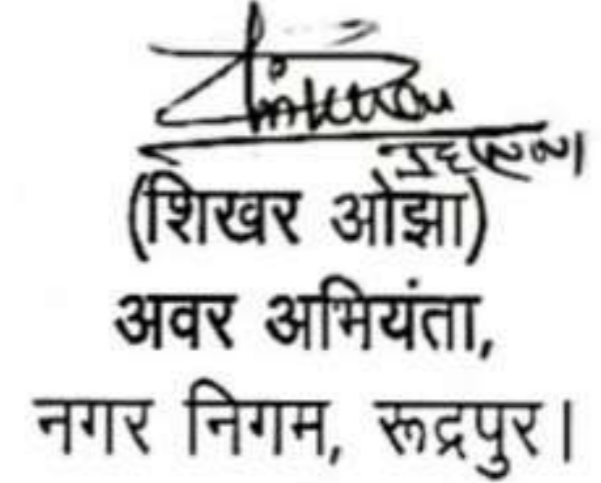 (शिखर ओझा)
अवर अभियंता,
नगर निगम, रूद्रपुर।